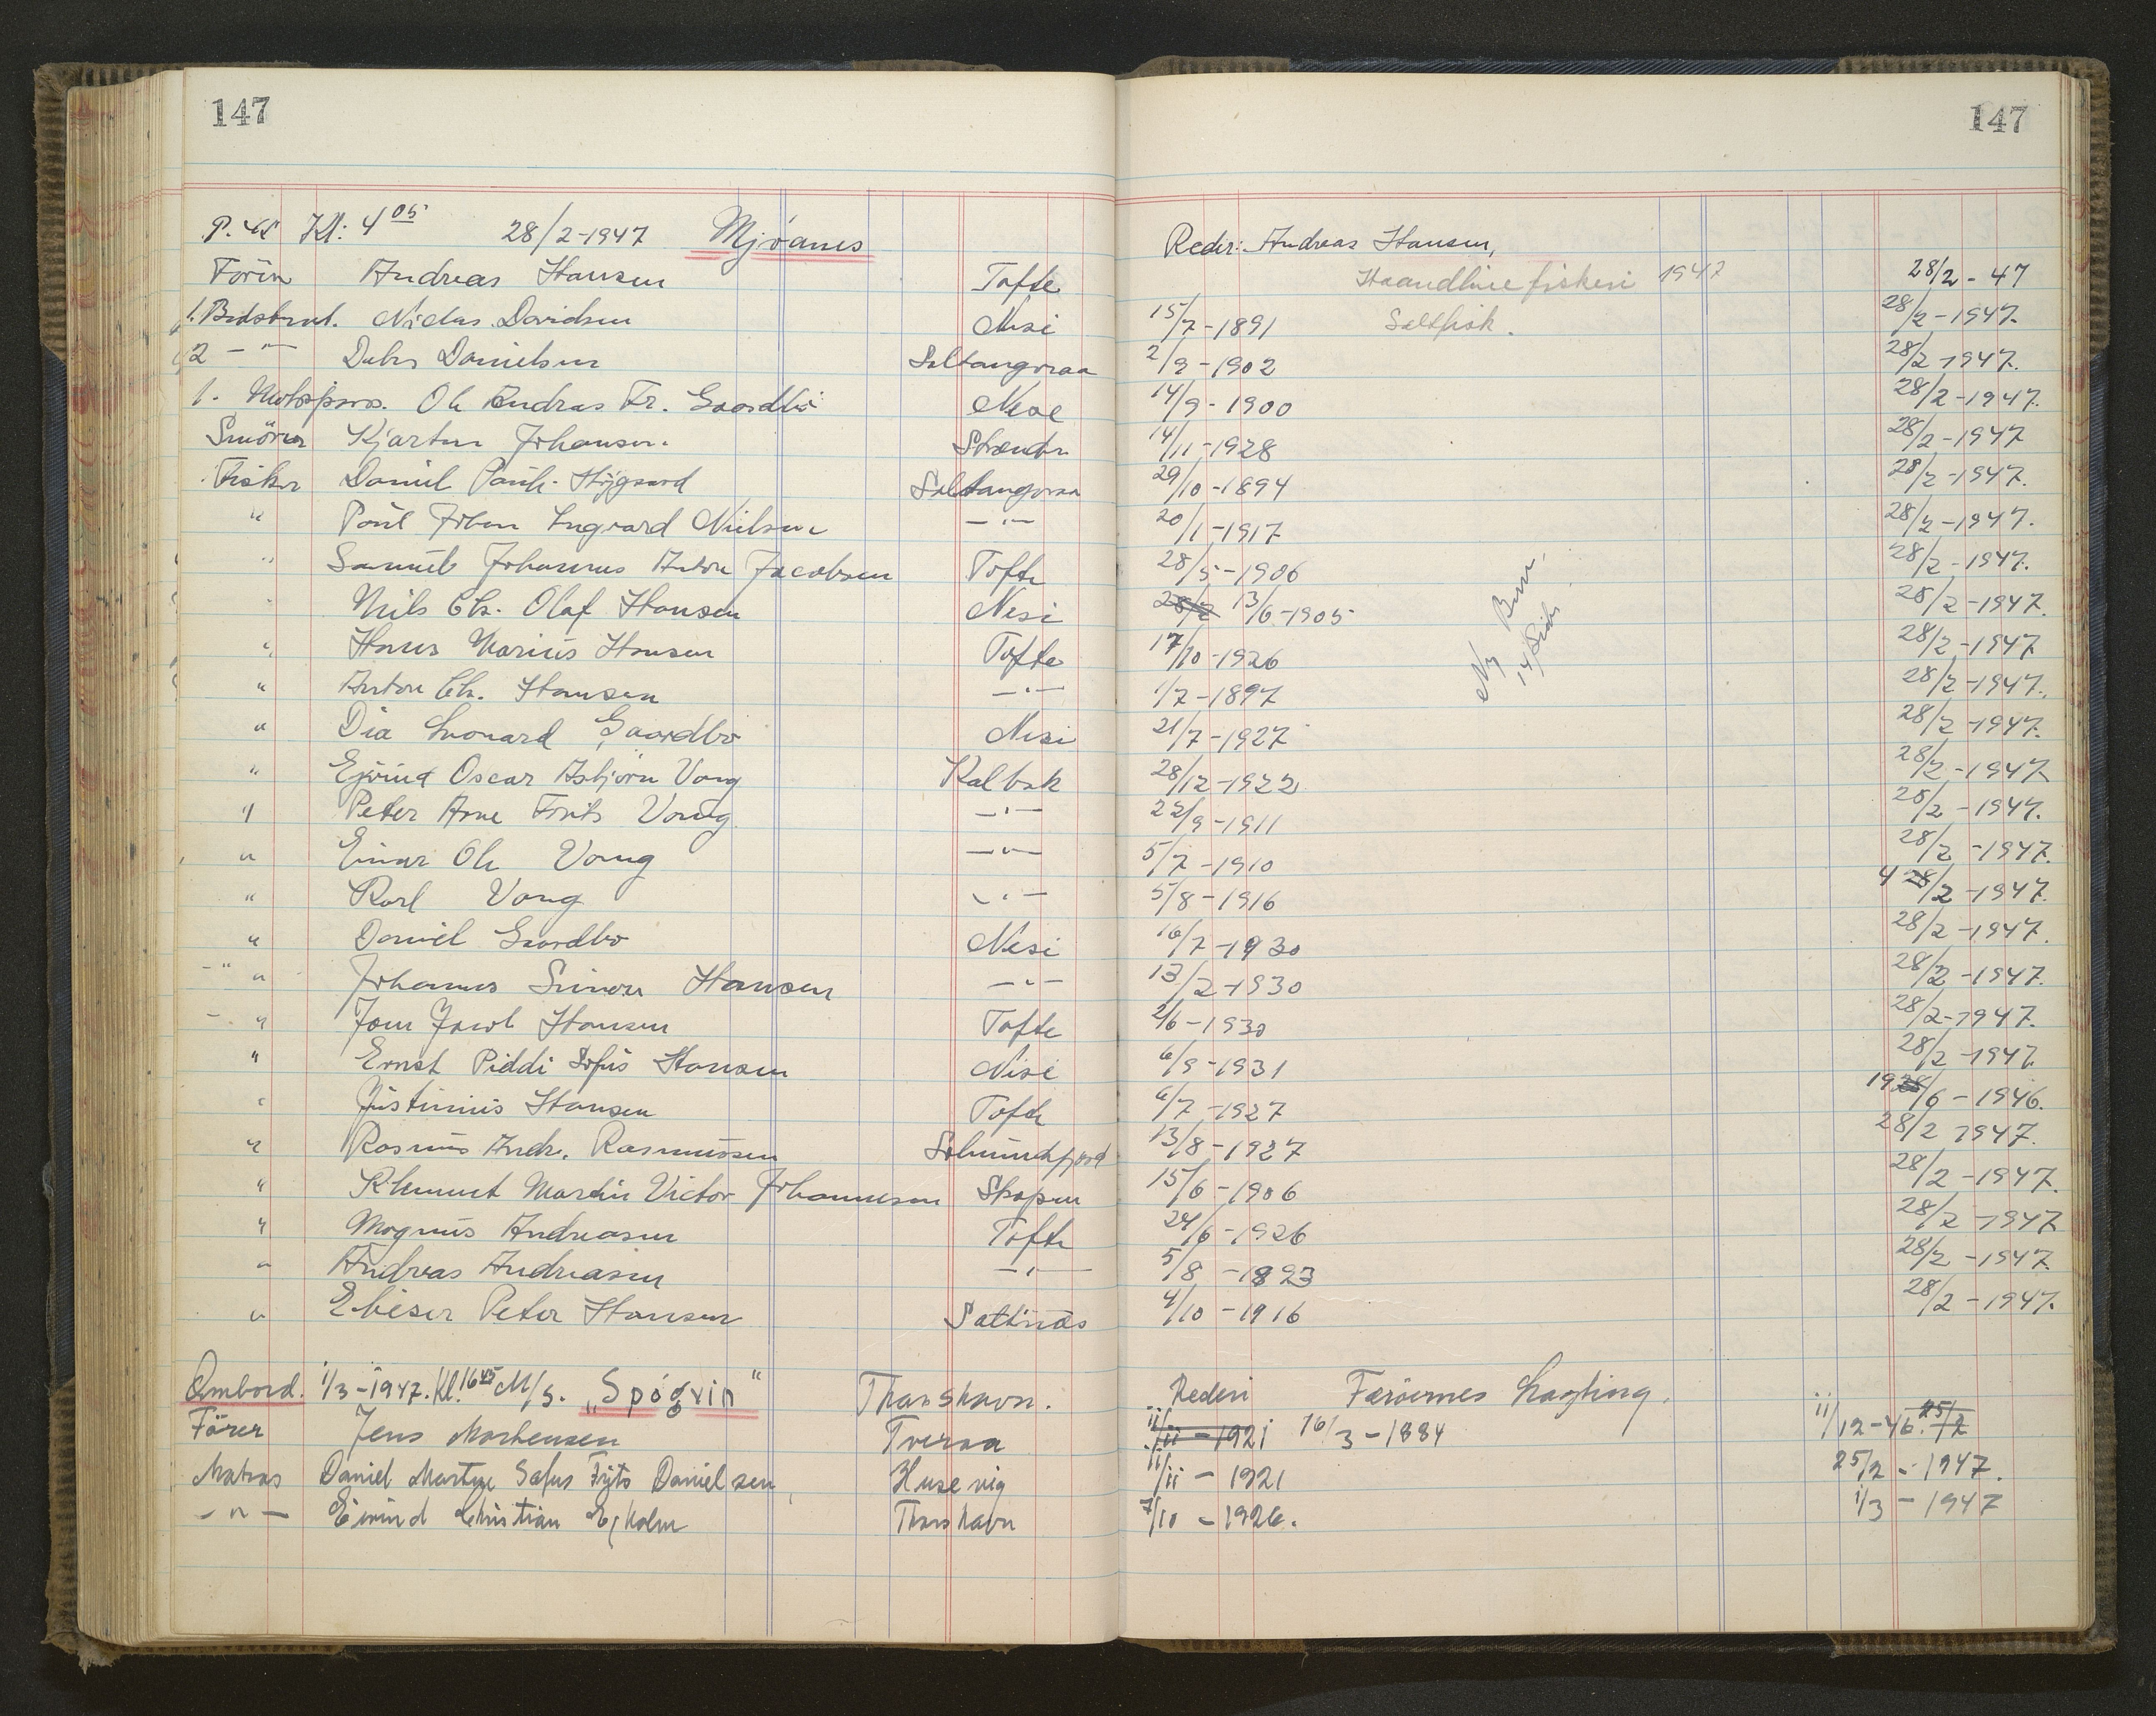 147 147
P. 41 Kl: 4 05 28/2-1947 Mjóanes Reder: Andreas Hansen,
Förer Andreas Hansen Tofte Haandline fiskeri 1947 28/2 - 47
1. Bedstmd. Niclas Davidsen Nesi 15/7-1891 Saltfisk. 28/2-1947.
2 - " - Danielsen Saltangeraa 2/9-1902 28/2-1947.
1. Motorpass. Ole Andreas Fr. Gaardbö Nese 14/9-1900 28/2-1947.
Smörer Kjartan Johansen. Strender 14/11-1928 28/2-1947
Fisker Daniel Pauli Höjgaard Saltangeraa 29/10-1894 28/2-1947.
" Poul Johan Ingvard Nielsen - " - 20/1-1917 28/2-1947.
" Samuel Johannes Anton Jacobsen Tofte 28/5-1906 28/2-1947.
" Niels Chr. Olaf Hansen Nesi 28/2 13/6-1905 28/2-1947.
" Hans Marius Hansen Tofte 17/10-1926 28/2-1947
" Anton Chr. Hansen - " - 1/7-1897 Ny 14 28/2-1947.
" Dia Leonard Gaardbö Nesi 21/7-1927 28/2-1947.
" Ejvind Oscar Asbjörn Vang Kalbak 28/12-1922 28/2-1947
" Peter Arne Frits Vang - " - 22/9-1911 28/2-1947.
" Einar Ole Vang - " - 5/7-1910 28/2-1947.
" Karl Vang - " - 5/8-1916 4 28/2-1947.
" Daniel Gaardbo Nesi 16/7-1930 28/2-1947.
- " " Johannes Simon Hansen - " - 13/2-1930 28/2-1947.
- " Joen Jacob Hansen Tofte 2/6-1930 28/2-1947.
" Ernst Piddi Sofus Hansen Nesi 6/9-1931 28/2-1947
" Justinus Hansen Tofte 6/7-1927 19 28/6-1946.
" Rasmus Andr. Rasmussen Solmundefjord 13/8-1927 28/2 1947.
" Klement Martin Victor Johannesen Skopun 15/6-1906 28/2-1947.
" Magnus Andreasen Tofte 24/6-1926 28/2-1947
" Andreas Andreasen - " - 5/8-1893 28/2-1947.
" Ebeser Peter Hansen Saltnæs 4/10-1916 28/2-1947.
Ombord. 1/3-1947. Kl. 16 45 M/S. „Spógvin" Thorshavn. Rederi Færöernes Lagting.
Förer Jens Mortensen Tveraa 11/11-1921 16/3-1884 11/12-46. 25/2
Matros Daniel Martge Sofus Frits Danielsen, Husevig 11/11-1921 25/2-1947.
- " - Eivind Christian Ejholm Thorshavn 7/10-1926. 1/3-1947